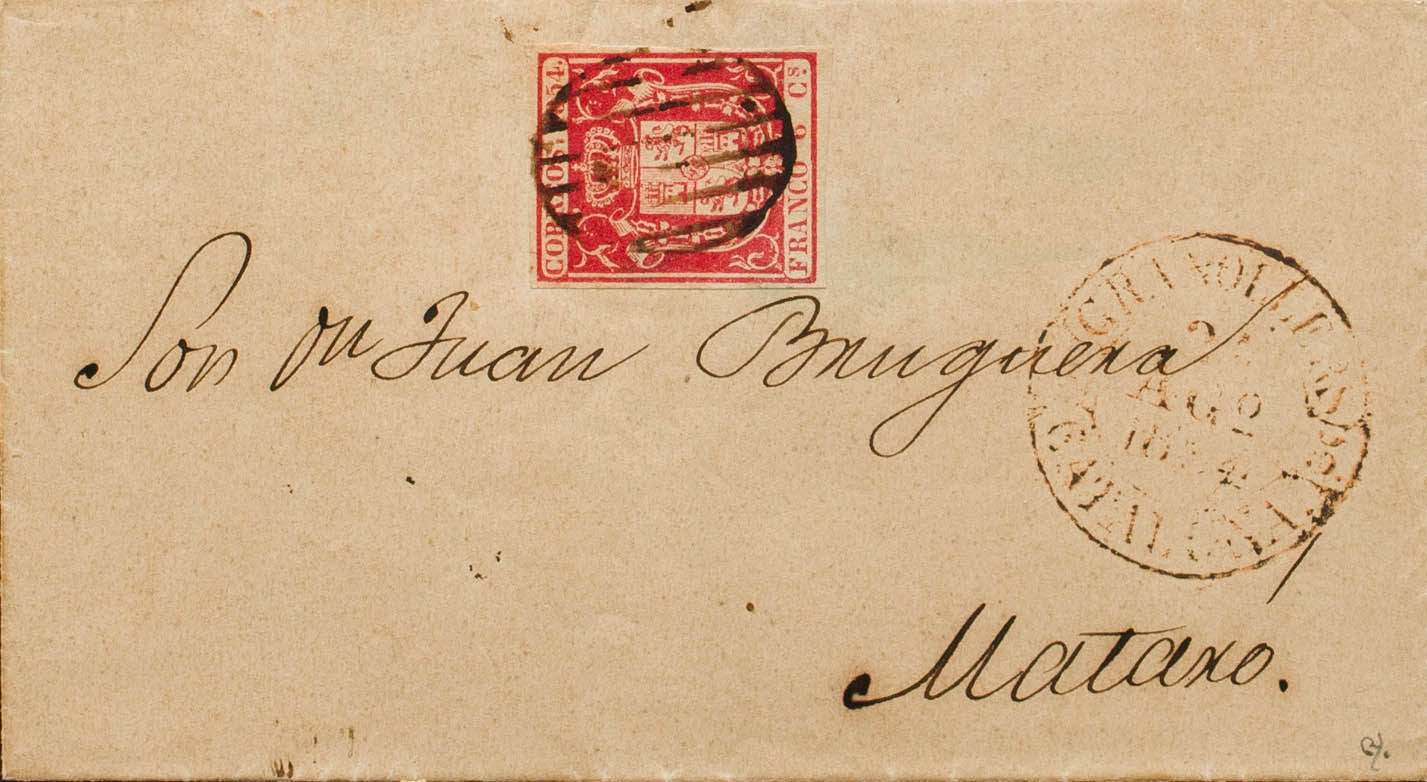 CORREOS 1854.
FRANCO 6 Cs
Sor Dn Juan Bruguera
GRANOLLERS
2
AGO
1854
CATALUÑA
Mataró.